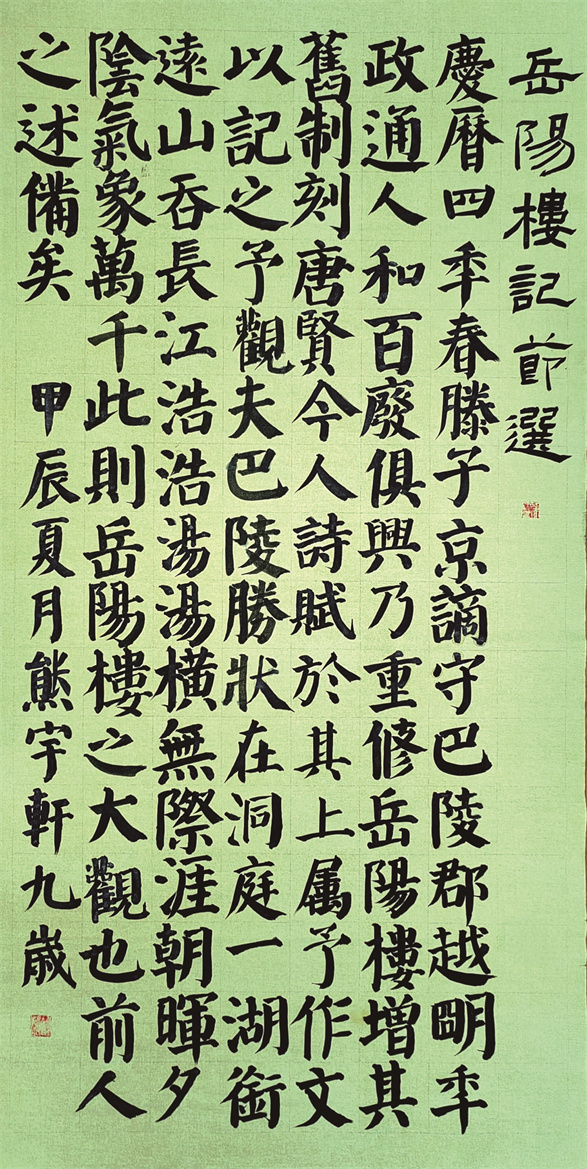 岳陽樓記節選
慶曆四年春滕子京謫守巴陵郡越明年
政通人和百廢俱興乃重修岳陽樓增其
舊制刻唐賢今人詩賦於其上属予作文
以記之予觀夫巴陵勝狀在洞庭一湖銜
遠山吞長江浩浩湯湯橫無際涯朝暉夕
陰氣象萬千此則岳陽樓之大觀也前人
之述備矣 甲辰夏月熊宇軒九歲